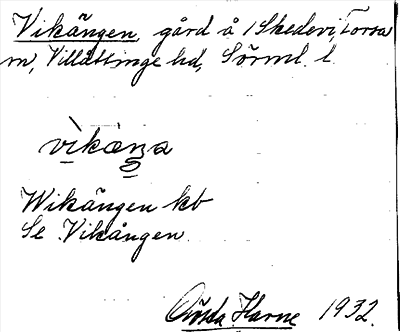 Vikängen, gård å 1 Skedevi, Torsa
m, Villåttinge hd, Sörml. l.
vìkæŋa
Wikängen kb
Se Vikången
Gösta Harne 1932.